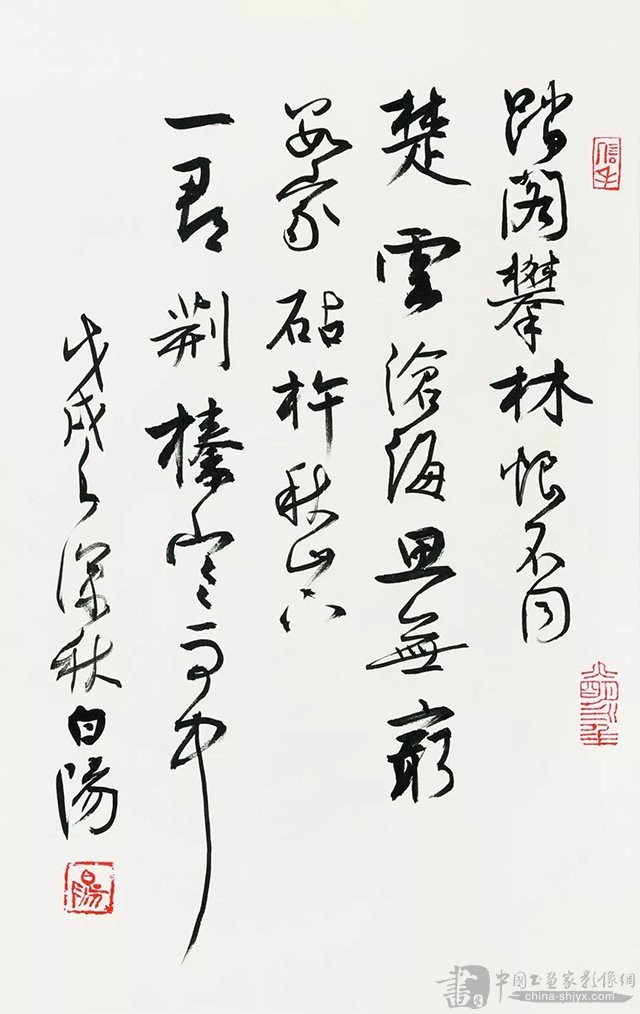 踏阁攀林恨不同
楚雲滄海思無窮
數家砧杵秋山下
一郡荆榛寒雨中
戊戌之深秋白陽
陽
中國书画家影像網
china-shjyx.com